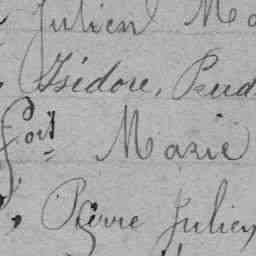 Julien Ma
Isidore, Prud
Marie
Pierre Julien